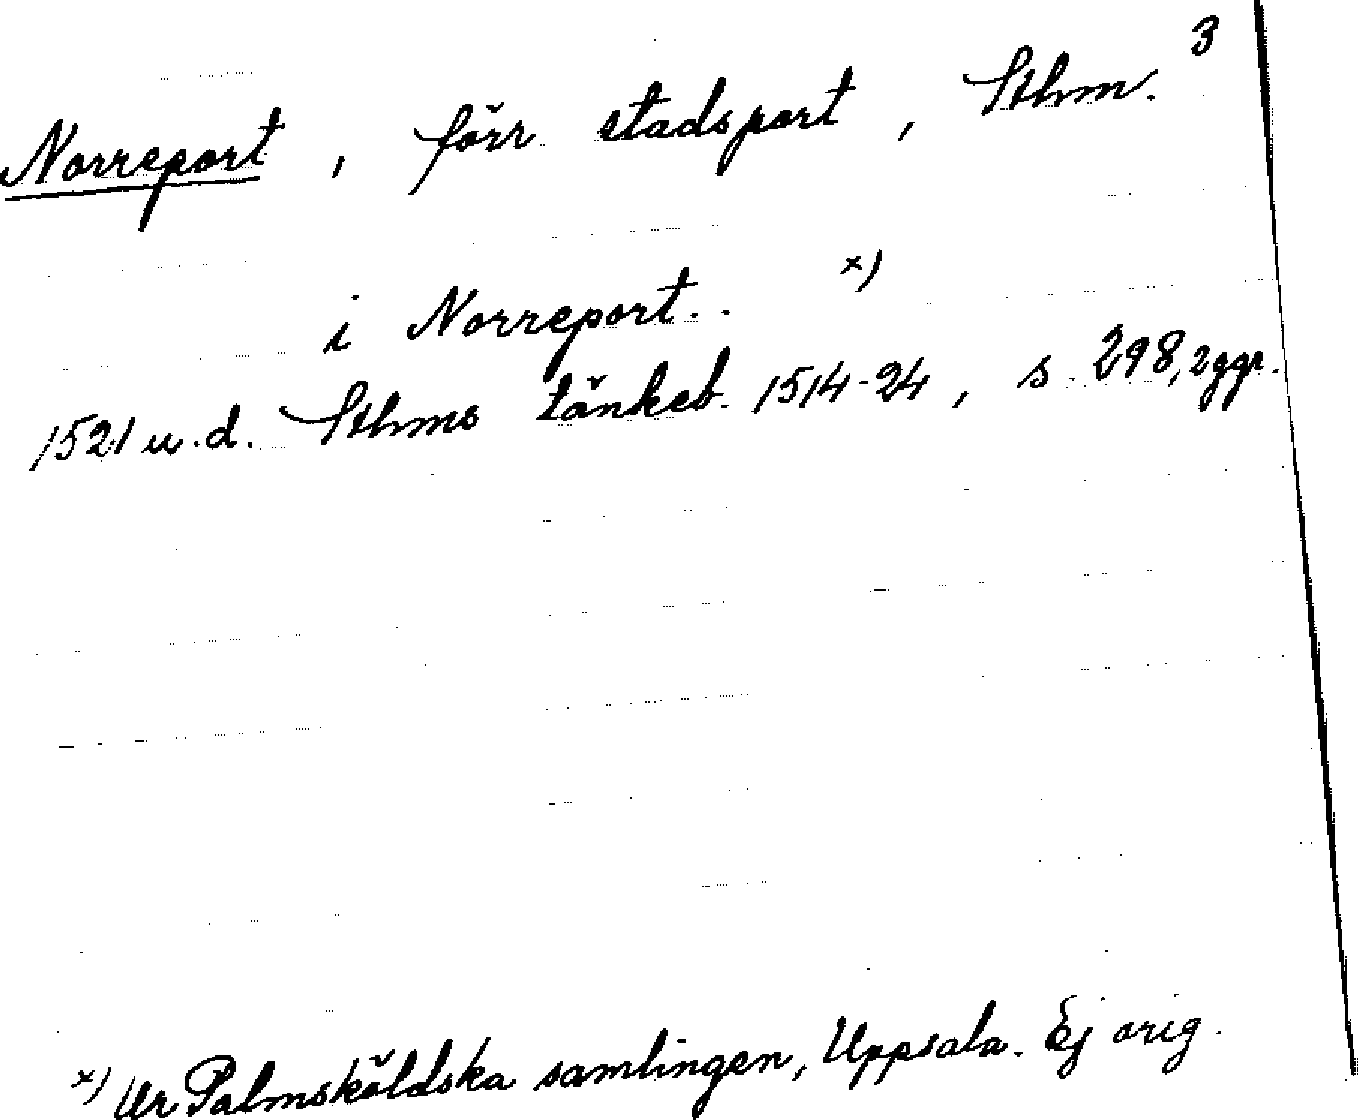 3
Norreport, förr stadsport, Sthm.
i Norreport.. x)
1521 u.d. Sthms tänkeb. 1514-24, s. 298, 2 ggr.
x) Ur Palmsköldska samlingen, Uppsala. Ej orig.